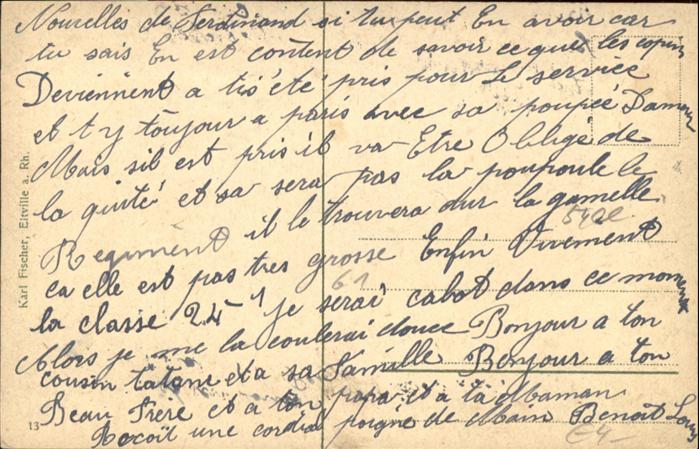 Nouvelles de Ferdinand si tu peut En avoir car
tu sais En est content de savoir ce que les copin
Deviennent a tis été pris pour Le service
et t y toujour a paris avec sa poupée Damour
Mais sil est pris il va Etre Obligé de
la quité et sa sera pas la poupoule le
Regiment il le trouvera dur la gamelle
ca elle est pas tres grosse Enfin Vivement
la classe 24 je serai cabot dans ce moment
Alors je me la coulerai douce Bonjour a ton
cousin tatane et a sa Famille Bonjour a ton
Beau Frere et a ton papa et a ta Maman
Recoit une cordial poigne de Main Benoit Louis
Karl Fischer, Eltville a. Rh.
13
61